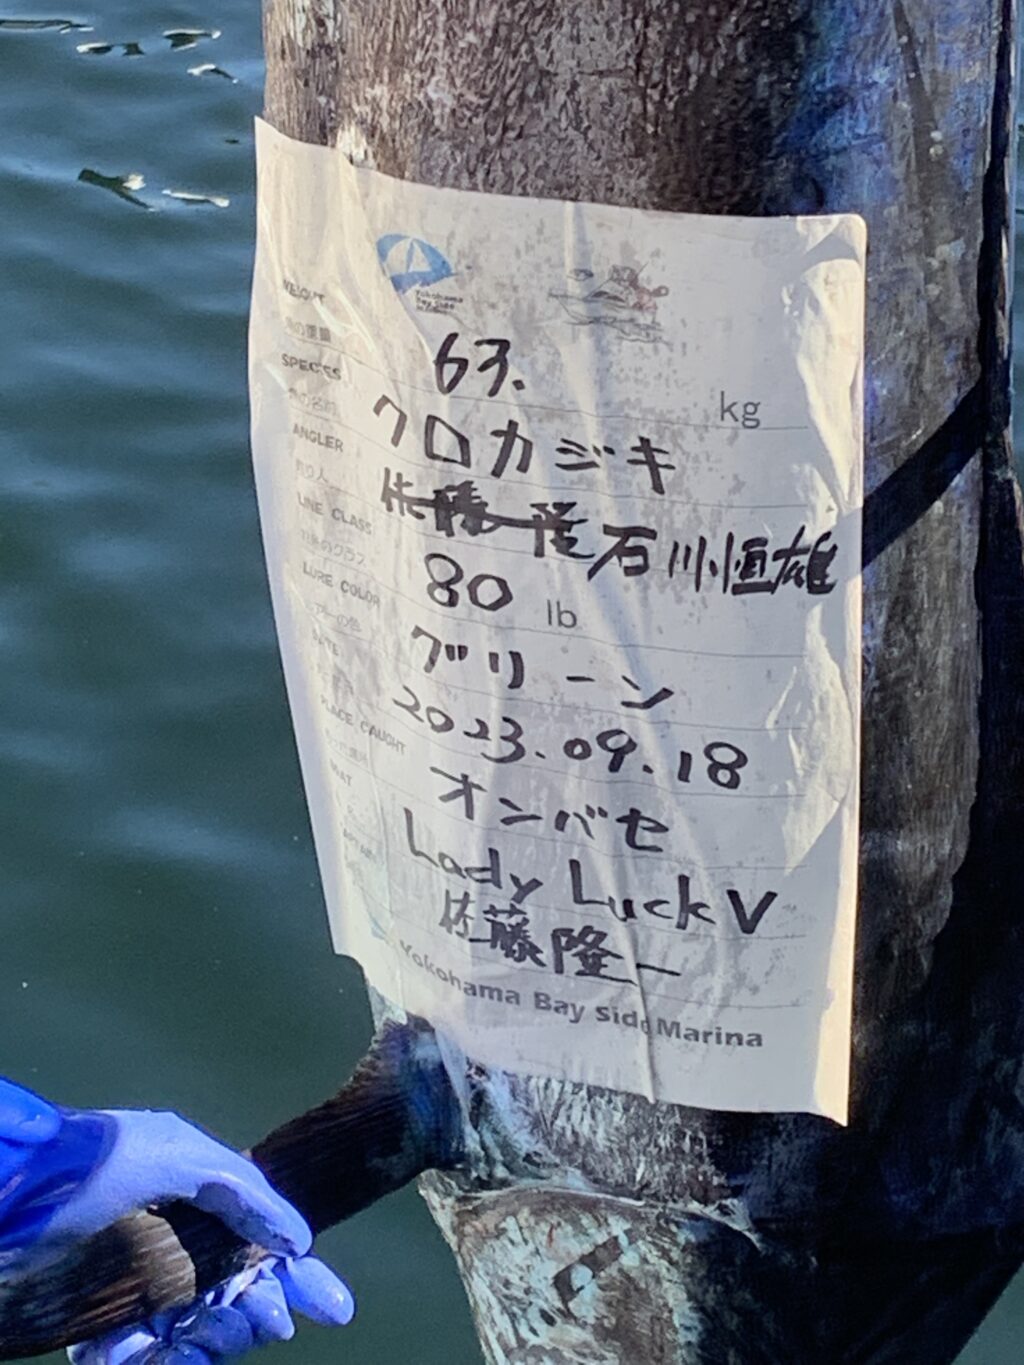 Yokohama
Bay Side
WEIGHT
魚の重量
63.
kg
SPECIES
魚の名前
クロカジキ
ANGLER
釣り人
佐藤 隆 石川恒雄
LINE CLASS
80 lb
LURE COLOR
ルアーの色
グリーン
DATE
2023.09.18
PLACE CAUGHT
オンバセ
BOAT
Lady Luck V
CAPTAIN
佐藤隆一
Yokohama Bay Side Marina